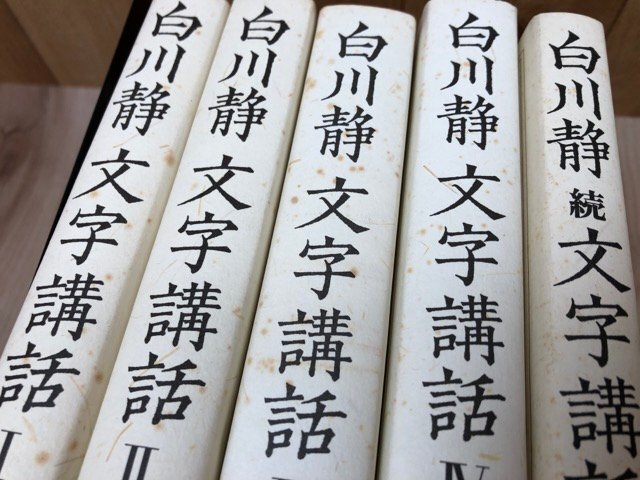 白川静 文字講話 I
白川静 文字講話 II
白川静 文字講話
白川静 文字講話 IV
白川静 続 文字講